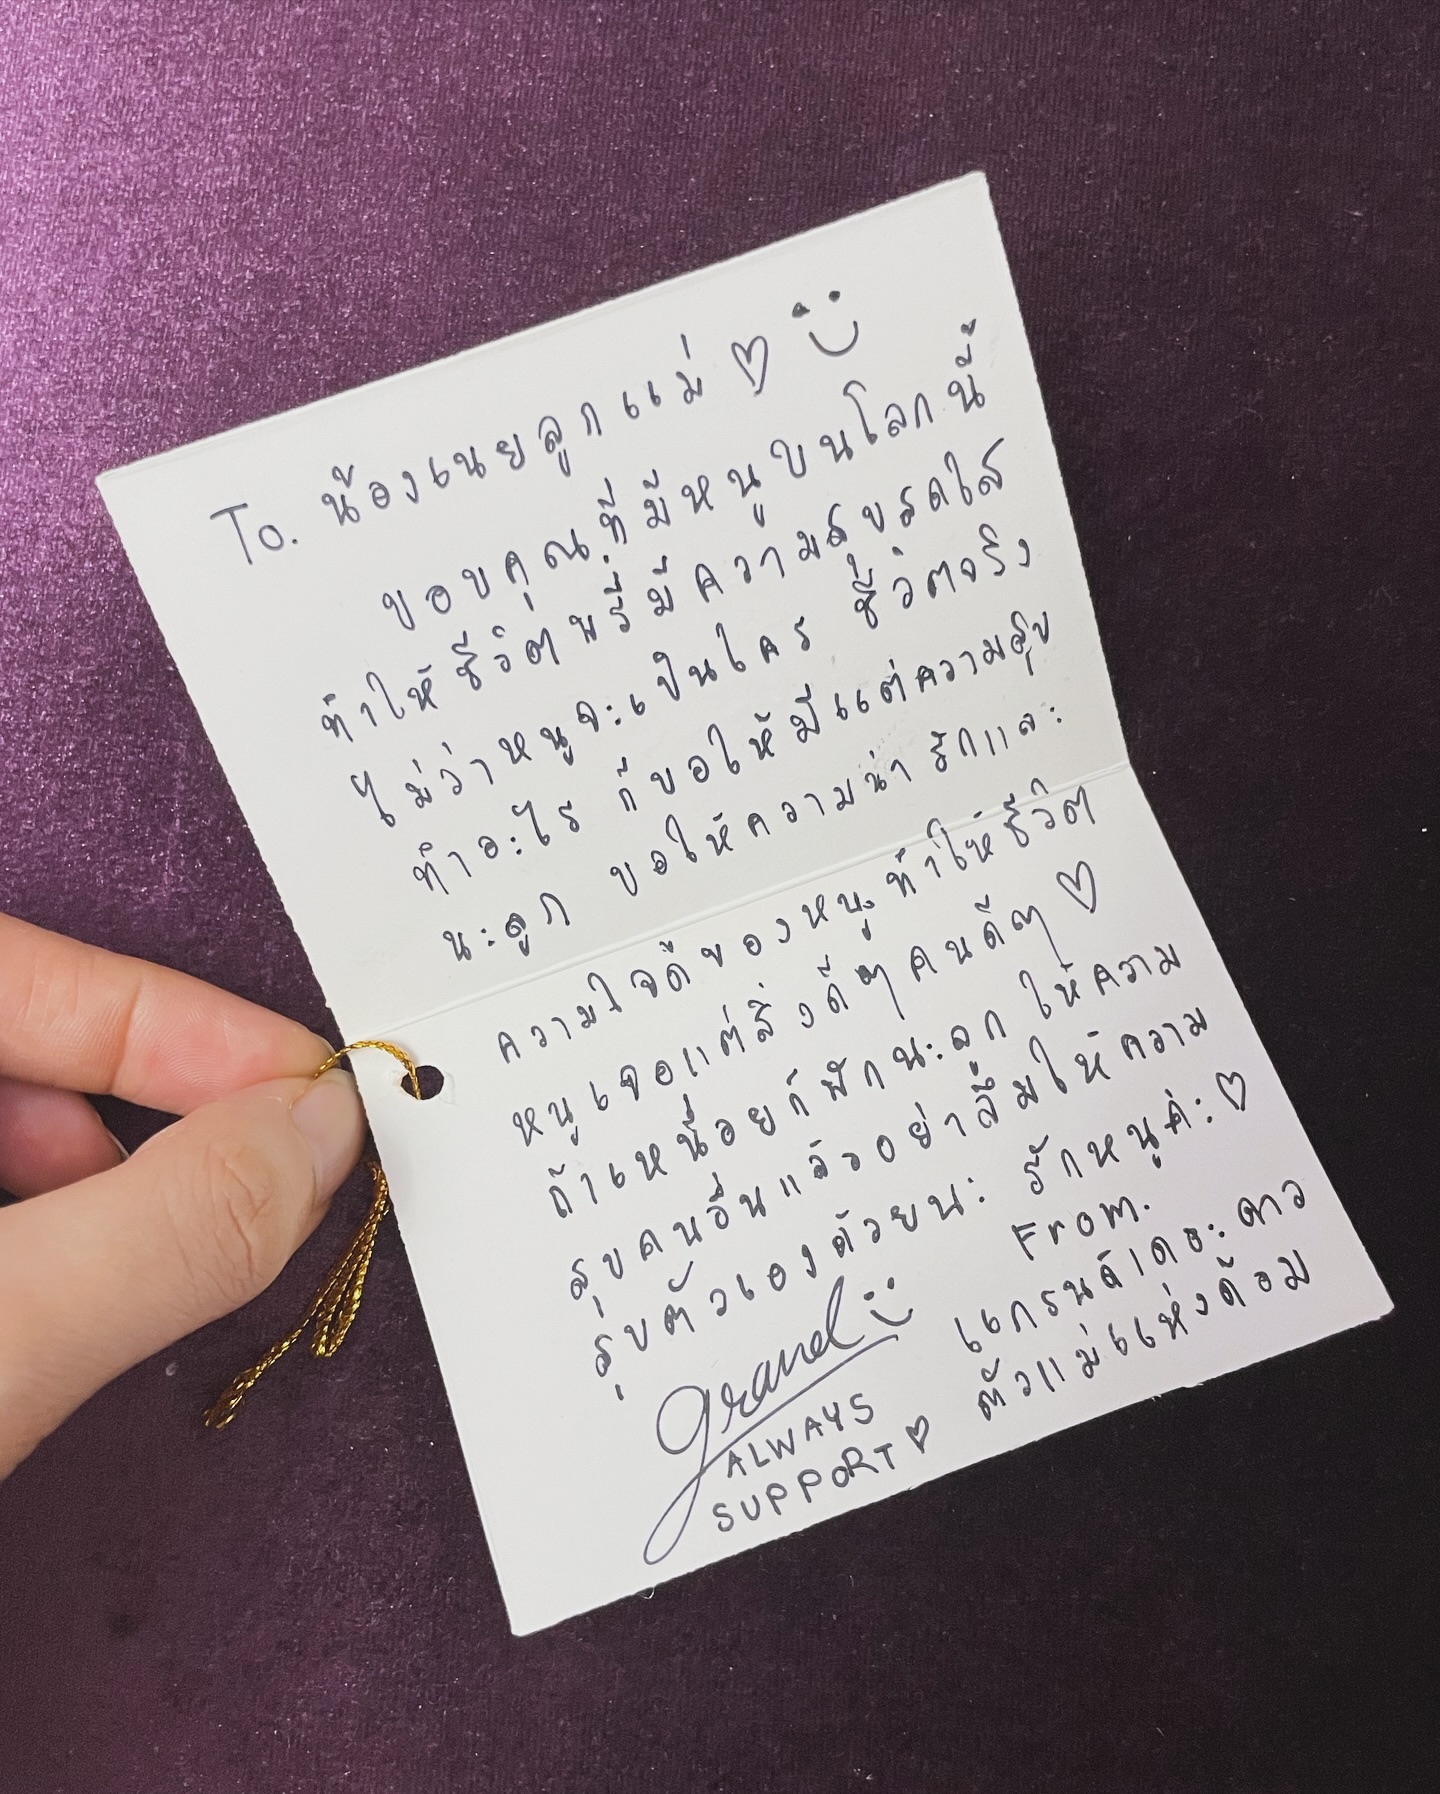 To. น้องเนยลูกแม่ ♡
ขอบคุณที่มีหนูบนโลกนี้
ทำให้ชีวิตพรี่มีความสุขสดใส
ไม่ว่าหนูจะเป็นใคร ชีวิตจริง
ทำอะไร ก็ขอให้มีแต่ความสุข
นะลูก ขอให้ความน่ารักและ
ความใจดีของหนู ทำให้ชีวิต
หนูเจอแต่สิ่งดีๆ คนดีๆ ♡
ถ้าเหนื่อยก็พักนะลูก ให้ความ
สุขคนอื่นแล้วอย่าลืมให้ความ
สุขตัวเองด้วยนะ รักหนูค่ะ ♡
From.
grand
แกรนด์เดอะดาว
ALWAYS
ตัวแม่แห่งด้อม
SUPPORT ♡